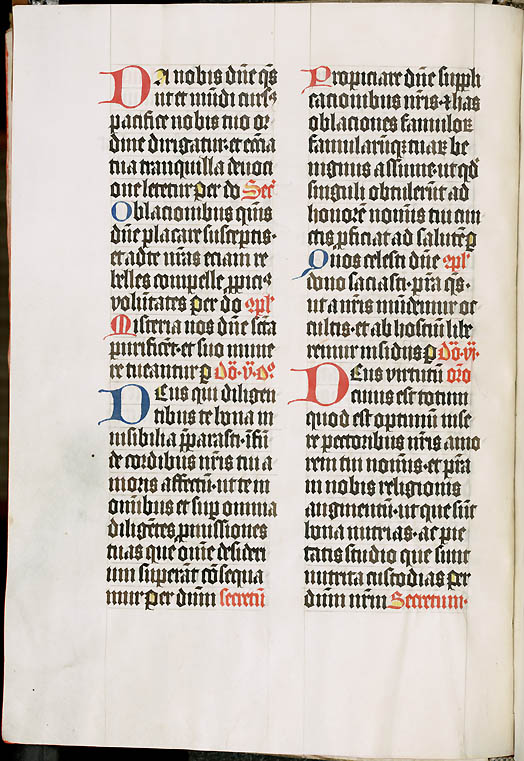 Da nobis dn̄e q̄s
ut et mūdi curs⁹
pacifice nobis tuo or
dine dirigatur· et ecc̄ia
tua tranquilla deuoti
one letetur per do Secͬ
Oblationibus q̄uis
dn̄e placare susceptis·
et ad te nr̄as eciam re
belles compelle ꝓpici⁹
volūtates per do 9pl̄
Misteria nos dn̄e sc̄ta
purificēt· et suo mune
re tueantur p Do·v·do
Deus qui diligen
tibus te bona in
uisibilia p̄parasti· īfūde
cordibus nr̄is tui a
moris affectū· ut te in
omībus et sup omnia
diligētes ꝓmissiones
tuas que om̄e desideri
um superāt cōsequa
mur per dn̄m secretū
Propiciare dn̄e suppli
cationibus nr̄is ⁊ has
oblaciones famuloꝝ
famularūqꝫ tuaꝝ be
nignus assume· ut qd̓
singuli obtulerūt ad
honorē nominis tui cun
ctis ꝓficiat ad salutē p
Quos celesti dn̄e 9pl̄
dono saciasti· p̄ta q̄s·
ut a nr̄is mūdemur oc
cultis· et ab hostiū libe
remur insidiis p Do·v·
Deus virtutū oro
cuius est totum
quod est optimū inse
re pectoribus nr̄is amo
rem tui nominis· et p̄ta
in nobis religionis
augmentū· ut que sūt
bona nutrias· ac pie
tatis studio que sunt
nutrita custodias per
dn̄m nr̄m Secretum·